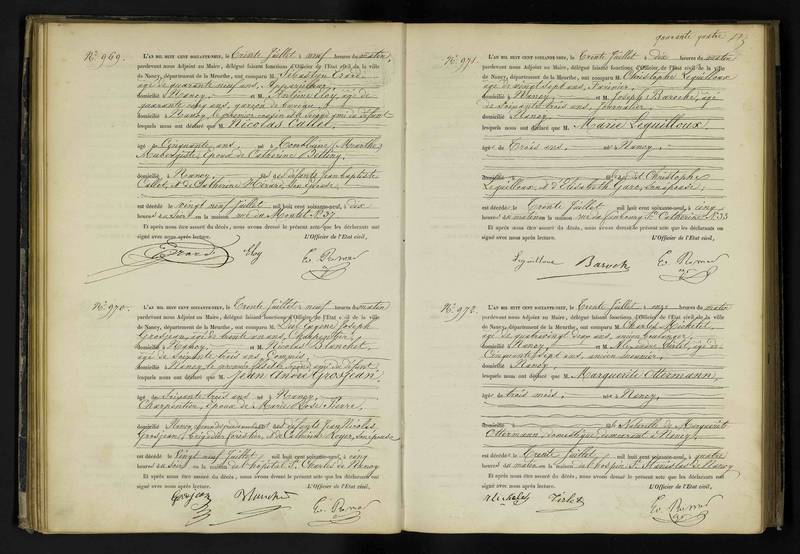 Nº 969.
L'AN MIL HUIT CENT SOIXANTE-NEUF, le Trente Juillet à neuf heures du matin,
pardevant nous Adjoint au Maire, délégué faisant fonctions d'Officier de l'Etat civil de la ville
de Nancy, département de la Meurthe, ont comparu M. Sébastien
âgé de quarante neuf ans, Appariteur,
domicilié à Nancy, et M. Antoine Eloy, âgé de
quarante cinq ans, garçon de bureau,
domicilié à Nancy, le premier cousin et le second ami du défunt
lesquels nous ont déclaré que M. Nicolas Callet,
âgé de Cinquante ans, né à (Meurthe)
époux de Catherine
domicilié à Nancy, fils des défunts Jean Baptiste
Callet, & de Catherine son épouse,
est décédé le vingt neuf Juillet mil huit cent soixante-neuf, à dix
heures du soir en la maison rue du Montet Nº 37.
Et après nous être assuré du décès, nous avons dressé le présent acte que les déclarants ont
signé avec nous après lecture. L'Officier de l'Etat civil,
Eloy
Nº 970.
L'AN MIL HUIT CENT SOIXANTE-NEUF, le Trente Juillet à neuf heures du matin
pardevant nous Adjoint au Maire, délégué faisant fonctions d'Officier de l'Etat civil de la ville
de Nancy, département de la Meurthe, ont comparu M. Eugène Joseph
Grosjean, âgé de trente un ans, Charpentier,
domicilié à Nancy, et M. Nicolas Blanchet,
âgé de soixante trois ans, Commis,
domicilié à Nancy, le premier fils et le second ami du défunt
lesquels nous ont déclaré que M. Jean André Grosjean,
âgé de Soixante trois ans né à Nancy,
Charpentier, époux de Marie Rose Pierre,
domicilié à Nancy, fils des défunts Jean Nicolas
Grosjean, Brigadier forestier, & de Catherine Royer, son épouse
est décédé le Vingt neuf Juillet mil huit cent soixante-neuf, à cinq
heures du soir en la maison de l'hôpital St Charles de Nancy
Et après nous être assuré du décès, nous avons dressé le présent acte que les déclarants ont
signé avec nous après lecture. L'Officier de l'Etat civil,
Grosjean
quarante quatre
Nº 971.
L'AN MIL HUIT CENT SOIXANTE-NEUF, le Trente Juillet à dix heures du matin
pardevant nous Adjoint au Maire, délégué faisant fonctions d'Officier de l'Etat civil de la ville
de Nancy, département de la Meurthe, ont comparu M. Christophe Leguilloux
âgé de vingt sept ans,
domicilié à Nancy, et M. Joseph Baroche, âgé
de Soixante trois ans, Journalier,
domicilié à Nancy,
lesquels nous ont déclaré que M. Marie Leguilloux,
âgée de Trois ans, née à Nancy,
domiciliée à fille dudit Christophe
Leguilloux, & d'Elisabeth Gare, son épouse,
est décédée le Trente Juillet mil huit cent soixante-neuf, à cinq
heures du matin en la maison rue du faubourg Ste Catherine Nº 33
Et après nous être assuré du décès, nous avons dressé le présent acte que les déclarants ont
signé avec nous après lecture. L'Officier de l'Etat civil,
Leguilloux
Nº 972.
L'AN MIL HUIT CENT SOIXANTE-NEUF, le Trente Juillet à onze heures du matin
pardevant nous Adjoint au Maire, délégué faisant fonctions d'Officier de l'Etat civil de la ville
de Nancy, département de la Meurthe, ont comparu M. Charles
âgé de quatrevingt deux ans, ancien boulanger,
domicilié à Nancy, et M. Alexandre âgé de
Cinquante sept ans, ancien meunier,
domicilié à Nancy,
lesquels nous ont déclaré que M. Marguerite Ottermann,
âgée de trois mois, née à Nancy,
domiciliée à fille Naturelle de Marguerite
Ottermann, domestique, demeurant à Nancy,
est décédée le Trente Juillet mil huit cent soixante-neuf, à quatre
heures du matin en la maison de l'hospice St Stanislas de Nancy
Et après nous être assuré du décès, nous avons dressé le présent acte que les déclarants ont
signé avec nous après lecture. L'Officier de l'Etat civil,